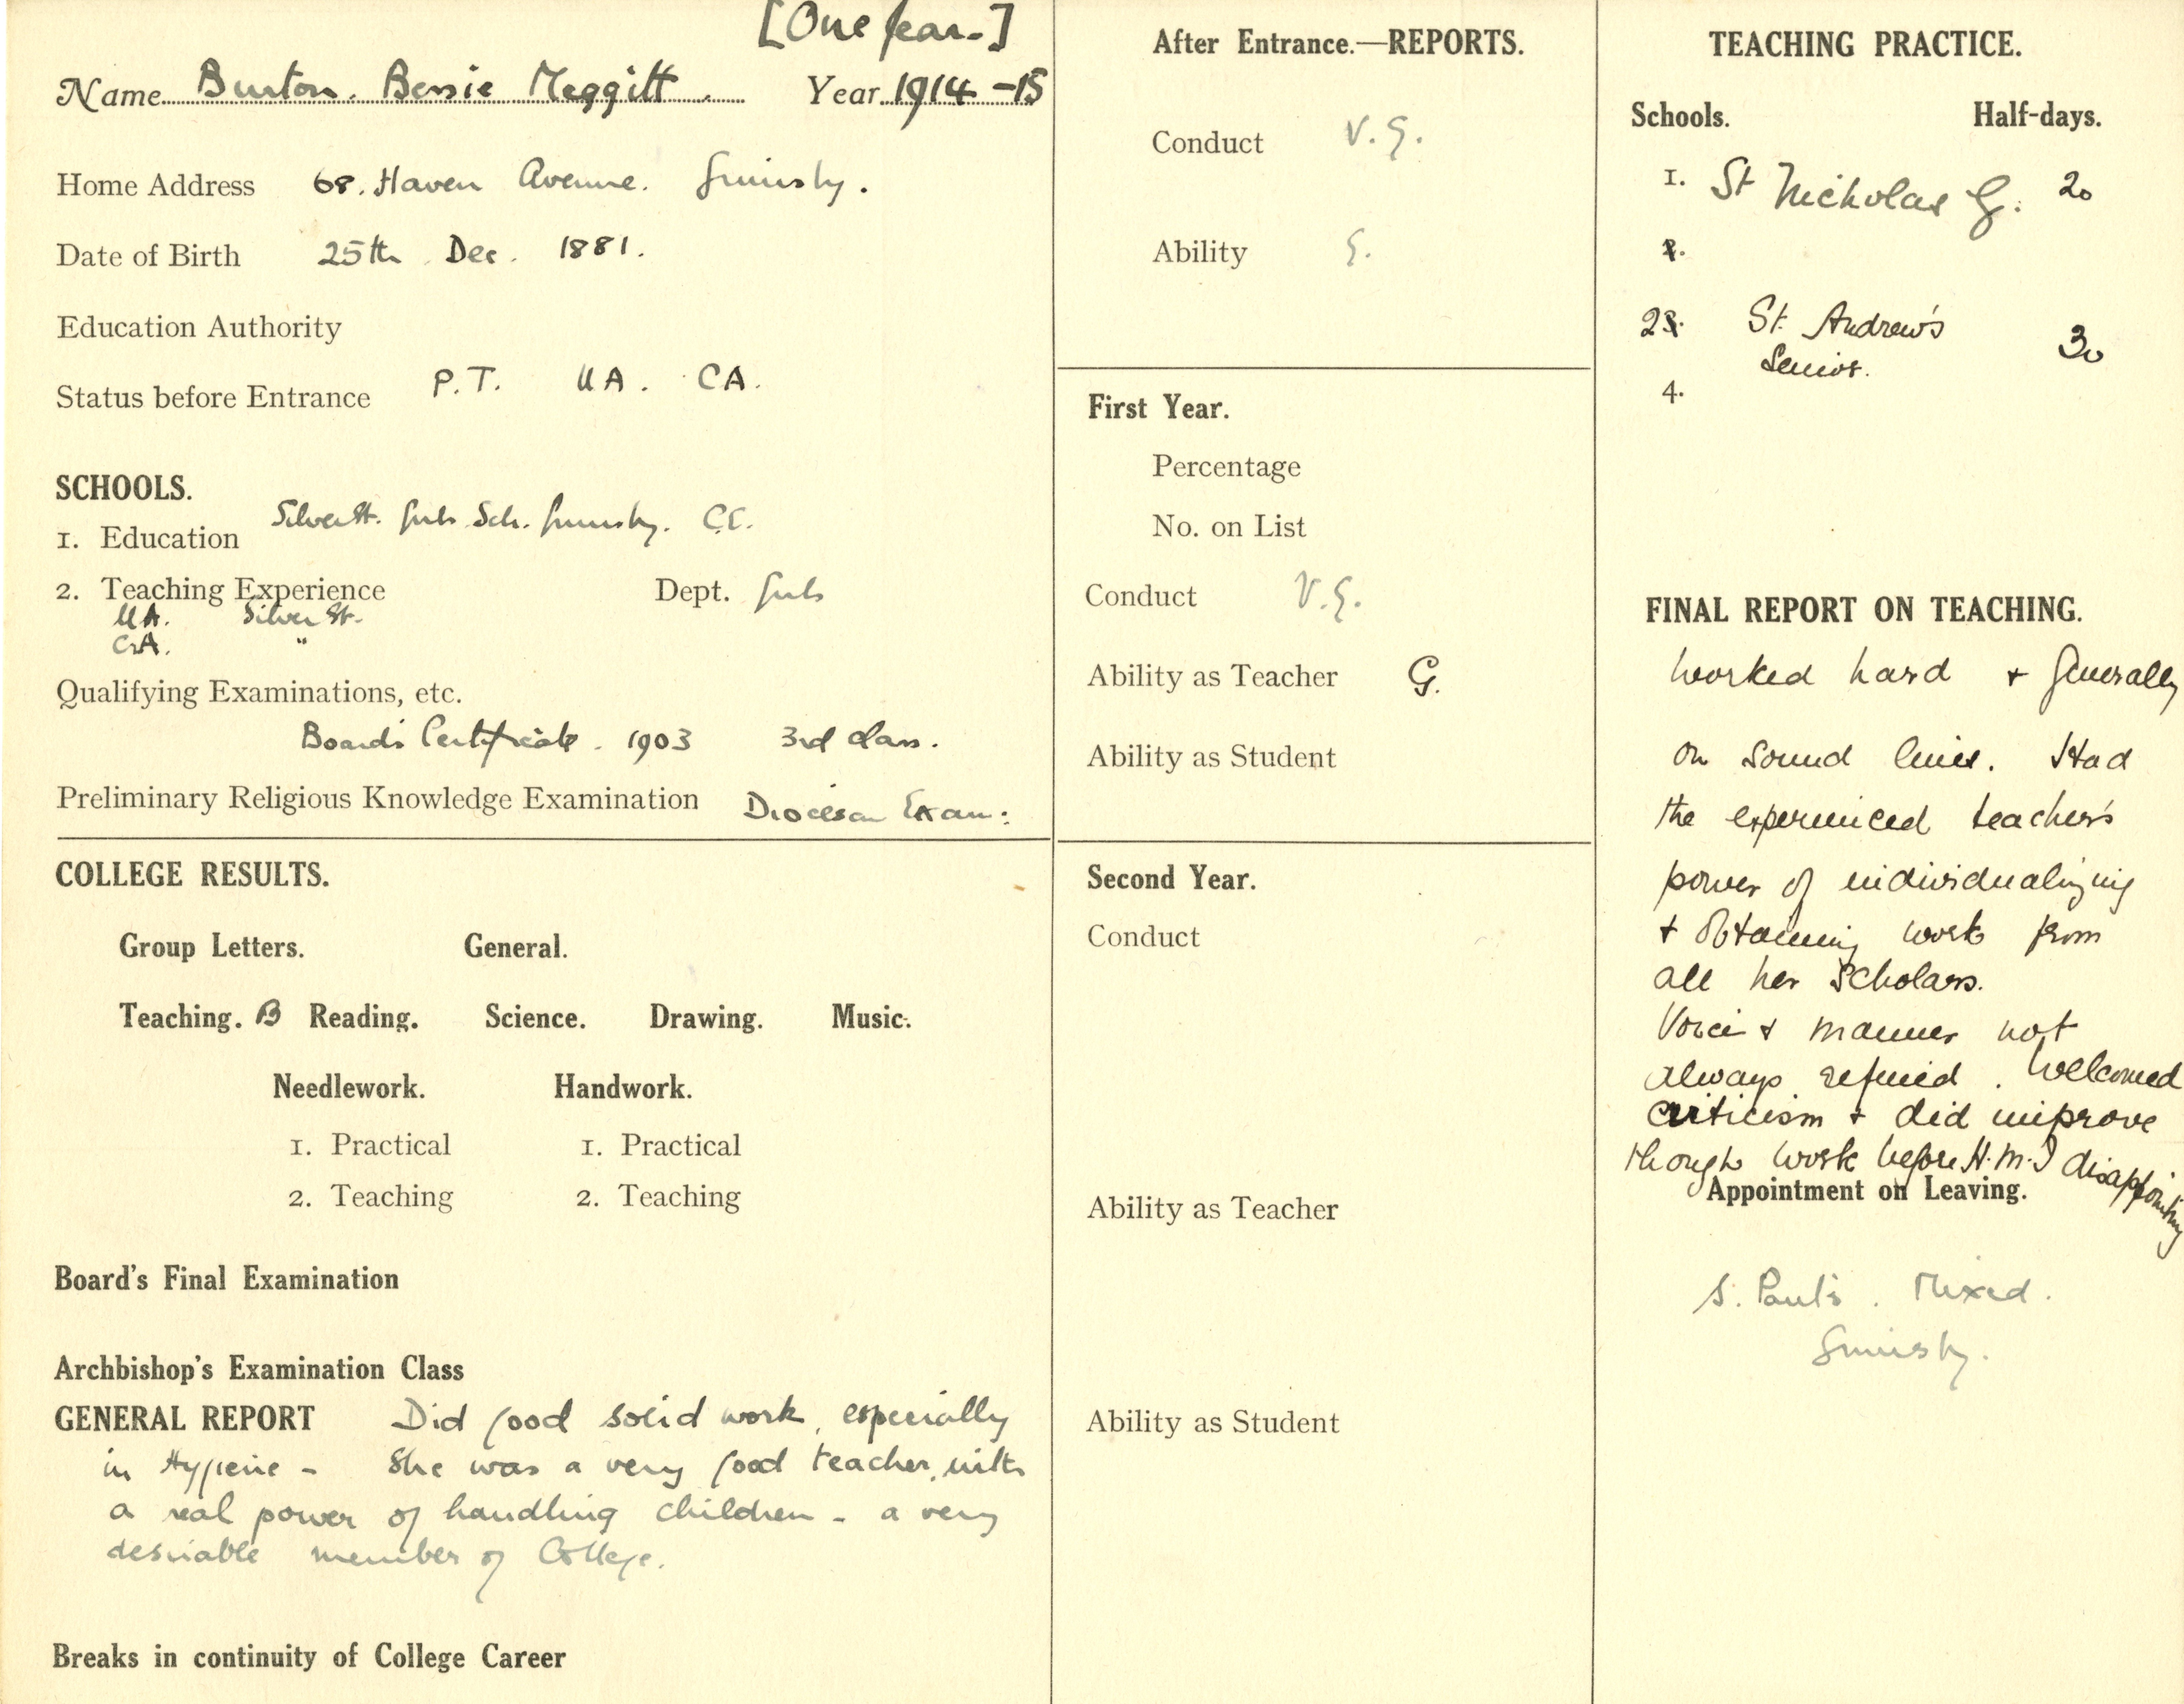 [One year.]
Name Burton. Bessie Meggitt. Year 1914-15
Home Address 68. Haven Avenue. Grimsby.
Date of Birth 25th Dec. 1881.
Education Authority
Status before Entrance P.T. UA. CA.
SCHOOLS.
1. Education Silver St. Girls Sch. Grimsby. C.E.
2. Teaching Experience Dept. Girls
UA. Silver St.
CA. "
Qualifying Examinations, etc.
Board's Certificate. 1903 3rd class.
Preliminary Religious Knowledge Examination Diocesan Exam:
COLLEGE RESULTS.
Group Letters. General.
Teaching. B Reading. Science. Drawing. Music.
Needlework. Handwork.
1. Practical 1. Practical
2. Teaching 2. Teaching
Board's Final Examination
Archbishop's Examination Class
GENERAL REPORT Did good solid work, especially
in Hygiene - She was a very good teacher, with
a real power of handling children - a very
desirable member of College.
Breaks in continuity of College Career
After Entrance.—REPORTS.
Conduct V.G.
Ability G.
First Year.
Percentage
No. on List
Conduct V.G.
Ability as Teacher G.
Ability as Student
Second Year.
Conduct
Ability as Teacher
Ability as Student
TEACHING PRACTICE.
Schools. Half-days.
1. St Nicholas G. 20
2.
23. St. Andrew's
Senior. 30
4.
FINAL REPORT ON TEACHING.
Worked hard + generally
on sound lines. Had
the experienced teacher's
power of individualizing
+ obtaining work from
all her scholars.
Voice + manner not
always refined. Welcomed
criticism + did improve
though work before H.M.I disappointing
Appointment on Leaving.
S. Paul's. Mixed.
Grimsby.